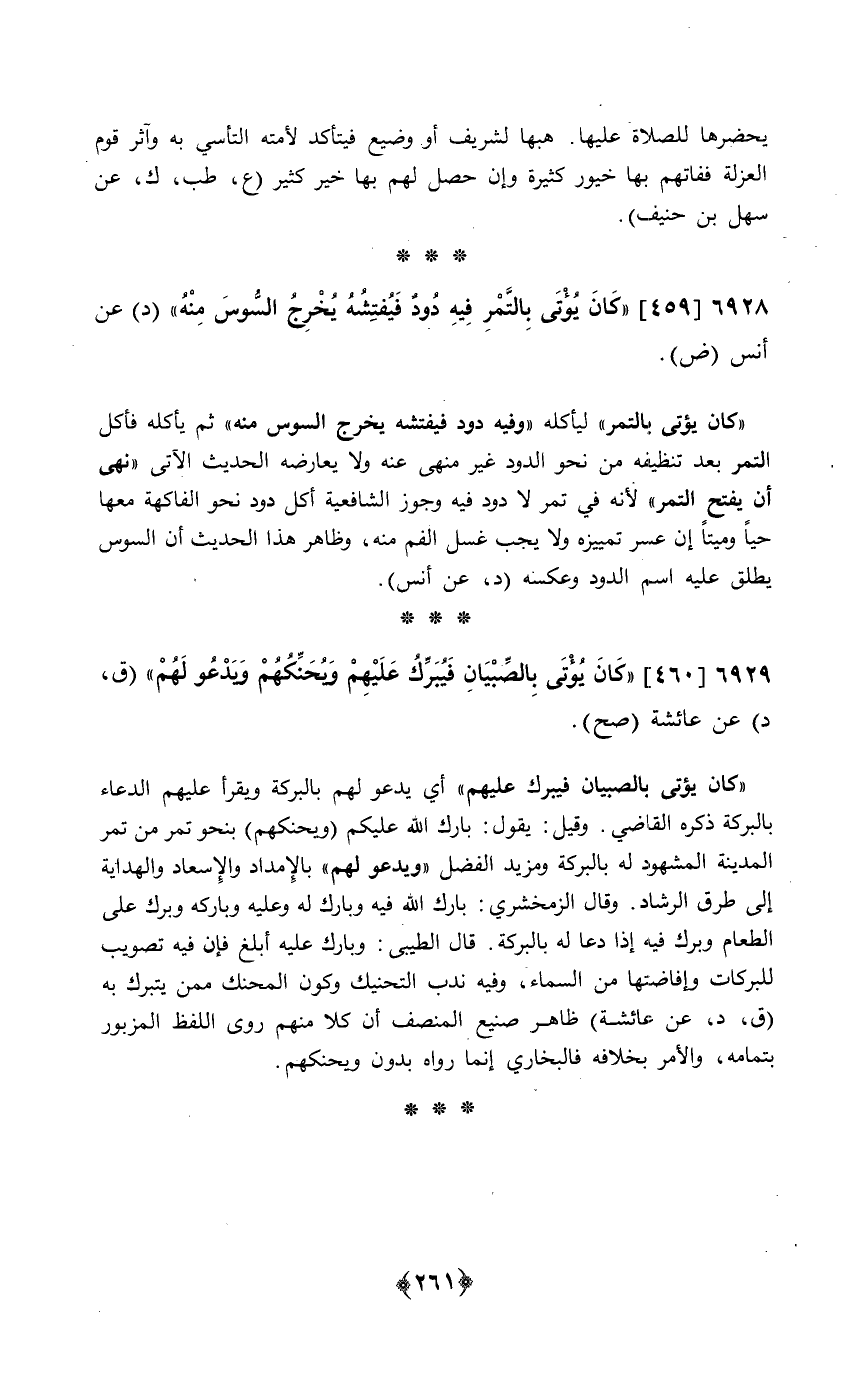 يحضرها للصلاة عليها. هبها لشريف أو وضيع فيتأكد لأمته التأسي به وآثر قوم
العزلة ففاتهم بها خيور كثيرة وإن حصل لهم بها خير كثير (ع، طب، ك، عن
سهل بن حنيف).
* * *
٦٩٢٨ [٤٥٩] «كَانَ يُؤْتَى بِالتَّمْرِ فِيهِ دُودٌ فَيُفَتِشُهُ يُخْرِجُ السُّوسَ مِنْهُ» (د) عن
أنس (ض).
«كان يؤتى بالتمر» ليأكله «وفيه دود فيفتشه يخرج السوس منه» ثم يأكله فأكل
التمر بعد تنظيفه من نحو الدود غير منهى عنه ولا يعارضه الحديث الآتى «نهى
أن يفتح التمر» لأنه في تمر لا دود فيه وجوز الشافعية أكل دود نحو الفاكهة معها
حياً وميتاً إن عسر تمييزه ولا يجب غسل الفم منه، وظاهر هذا الحديث أن السوس
يطلق عليه اسم الدود وعكسه (د، عن أنس).
* * *
٦٩٢٩ [٤٦٠] «كَانَ يُؤْتَى بِالصِّبْيَانِ فَيُبَرِّكُ عَلَيْهِمْ وَيُحَنِّكُهُمْ وَيَدْعُو لَهُمْ» (ق،
د) عن عائشة (صح).
«كان يؤتى بالصبيان فيبرك عليهم» أي يدعو لهم بالبركة ويقرأ عليهم الدعاء
بالبركة ذكره القاضي. وقيل: يقول: بارك الله عليكم (ويحنكهم) بنحو تمر من تمر
المدينة المشهود له بالبركة ومزيد الفضل «ويدعو لهم» بالإمداد والإسعاد والهداية
إلى طرق الرشاد. وقال الزمخشري: بارك الله فيه وبارك له وعليه وباركه وبرك على
الطعام وبرك فيه إذا دعا له بالبركة. قال الطيبى: وبارك عليه أبلغ فإن فيه تصويب
للبركات وإفاضتها من السماء، وفيه ندب التحنيك وكون المحنك ممن يتبرك به
(ق، د، عن عائشة) ظاهر صنيع المنصف أن كلا منهم روى اللفظ المزبور
بتمامه، والأمر بخلافه فالبخاري إنما رواه بدون ويحنكهم.
* * *
﴿٢٦١﴾